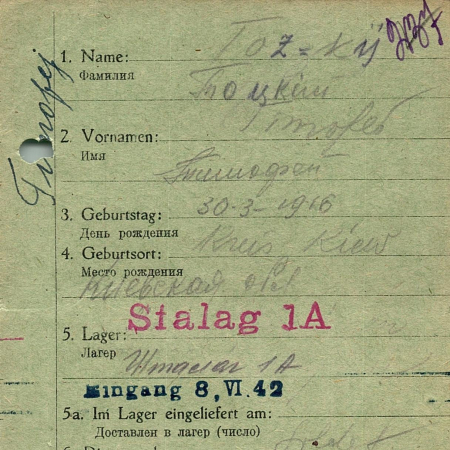 1. Name: Тоz=кij
Фамилия Тоцкий
2. Vornamen: Timofeo
Имя Тимофей
Timofej
3. Geburtstag: 30-3-1916
День рождения
4. Geburtsort: Kreis Kiew
Место рождения
Киевская обл
Stalag 1A
5. Lager:
Лагер Шталаг 1А
Eingang 8, VI. 42
5a. Im Lager eingeliefert am:
Доставлен в лагер (число)